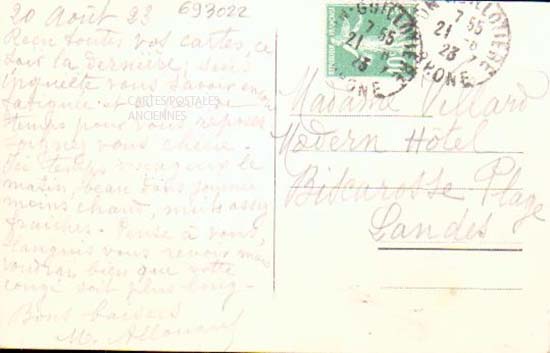 20 Août 23
693022
Reçu toutes vos cartes, ce
soir la dernière, suis
inquiète vous savoir en
fatiguée et
temps pour vous reposer
soignez vous chérie.
temps orageux le
matin, beau dans journée
moins chaud, nuits assez
fraîches. Pense à vous,
languis vous revoir mais
voudrais bien que votre
congé soit plus long.
Bons baisers
M.
CARTES POSTALES
ANCIENNES
LYON-GUILLOTIERE
7 55
21 - 8
23
RHONE
Madame Villard
Modern Hôtel
Biscarosse Plage
Landes